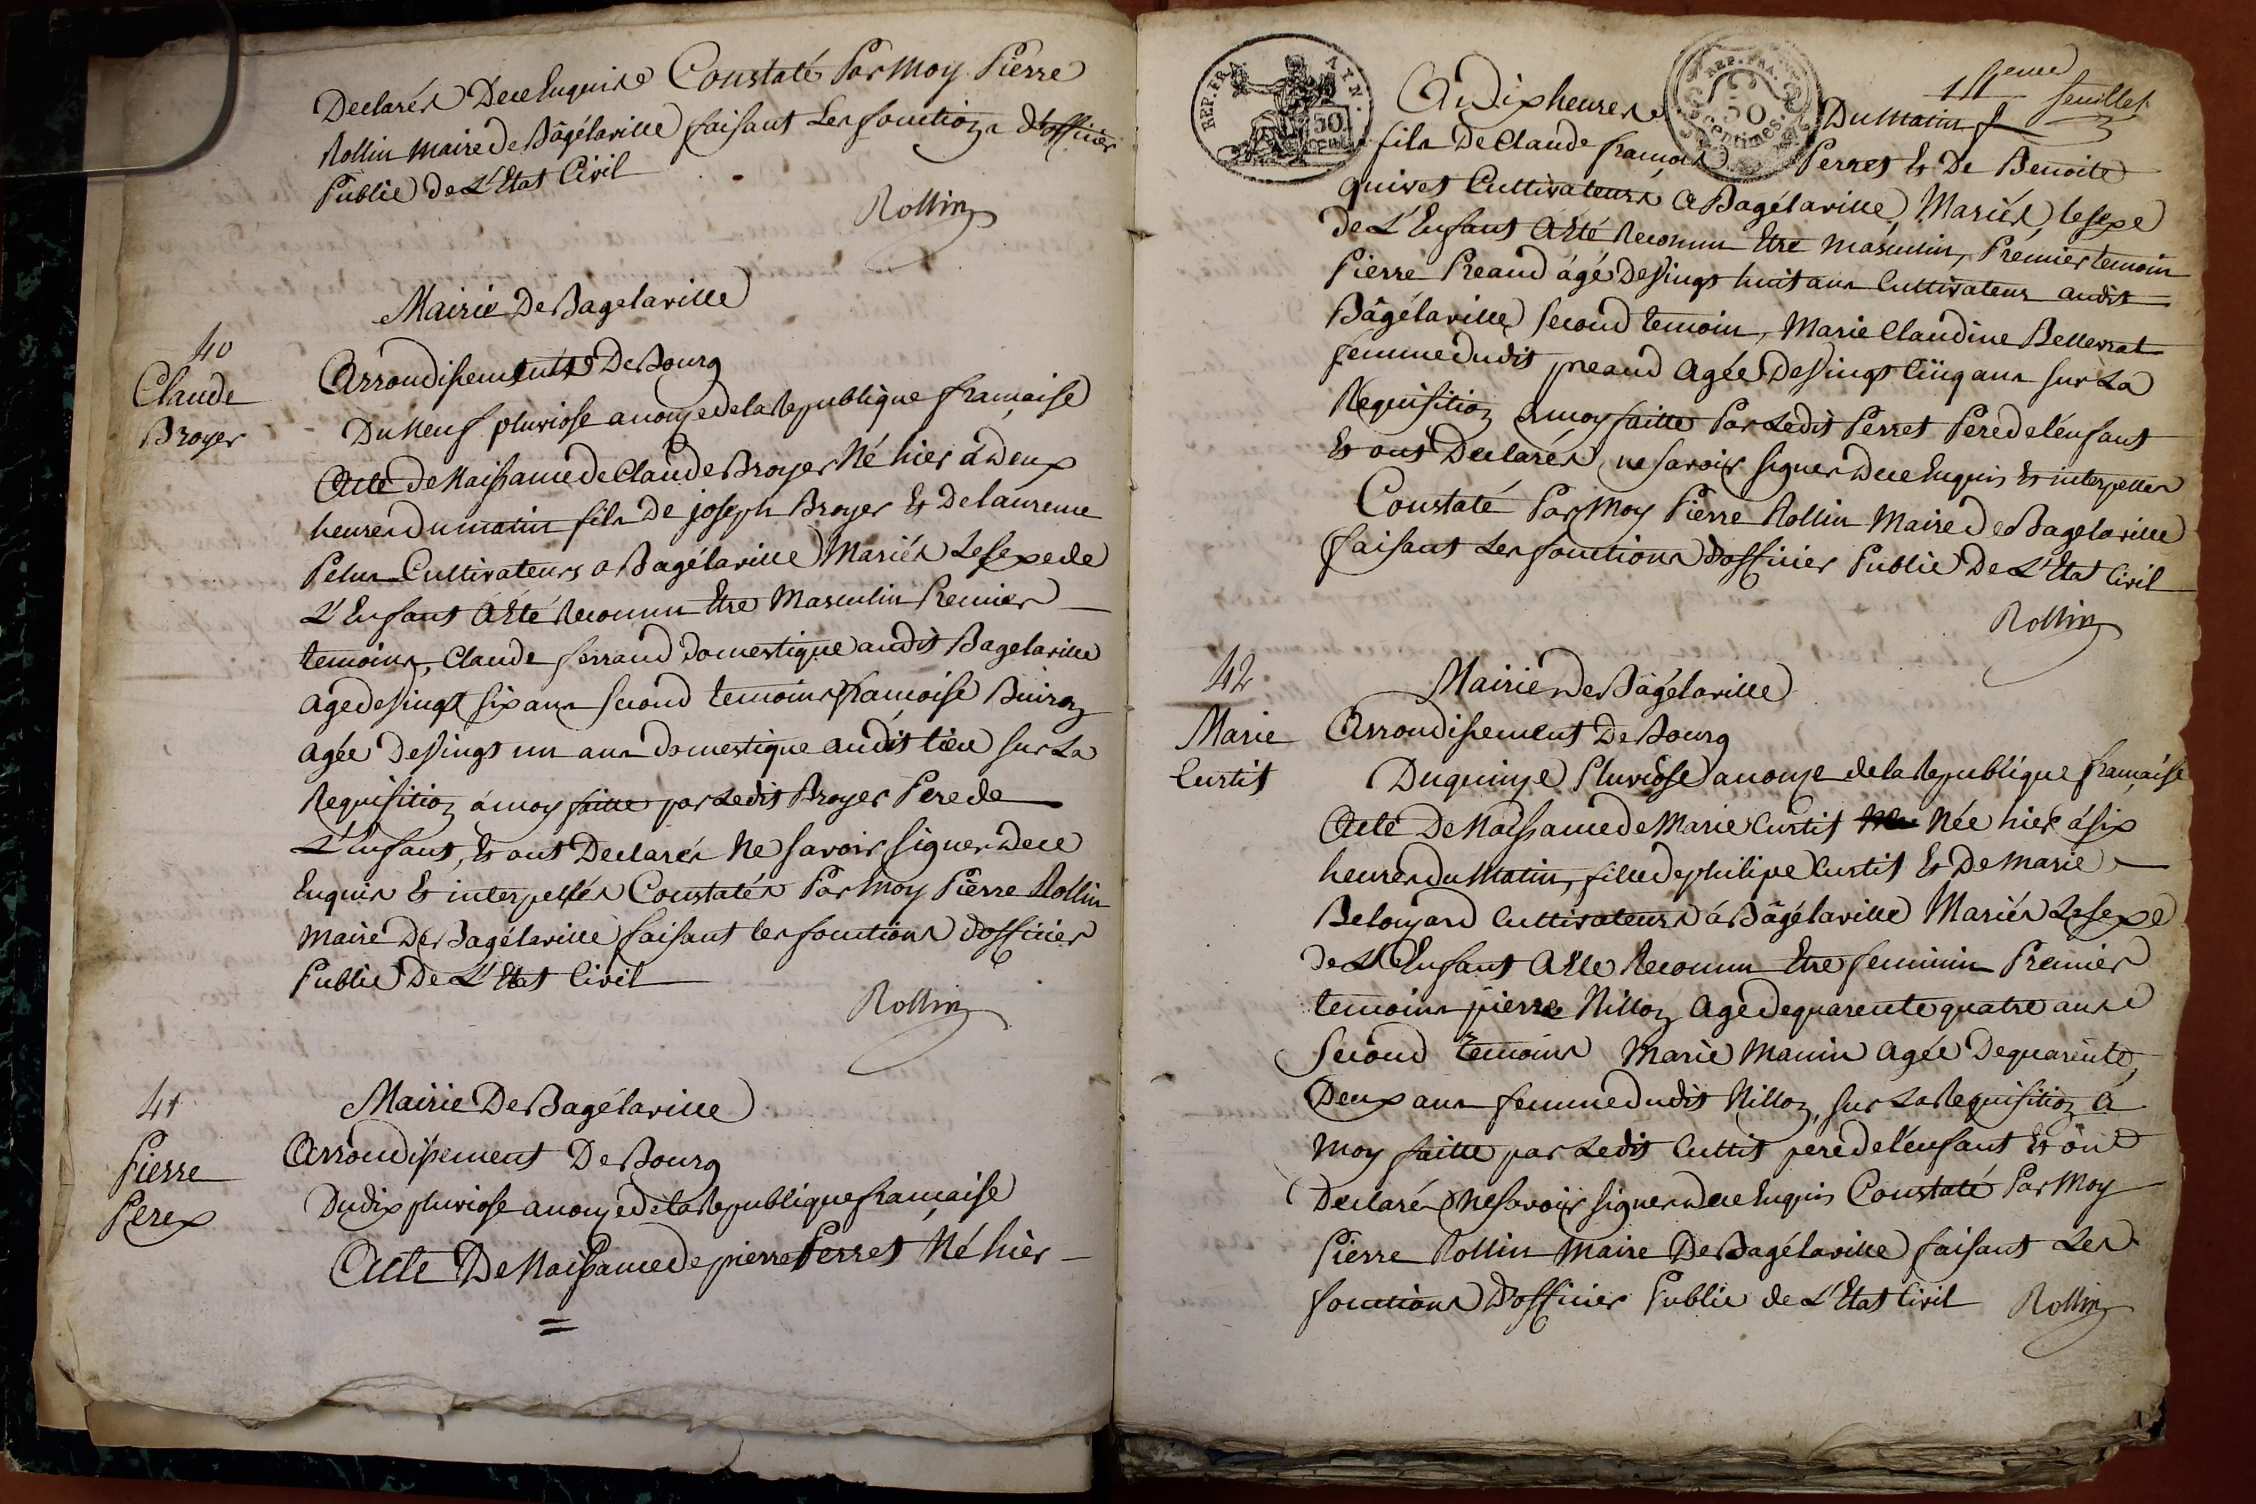 Declarés De ce Enquis Constaté Par Moy Pierre
Rollin Maire De Bâgélaville faisant Les fonctions d'officier
Public de L'Etat Civil
Rollin
Mairie De Bagelaville
40
Claude
Broyer
Arrondissements De Bourg
Du Neuf pluviose an onze de la Republique française
Acte de Naissance de Claude Broyer Né hier à Deux
heures du matin fils De joseph Broyer Et De laurence
Cultivateurs a Bagélaville Mariés Le sexe de
L'Enfant A Eté Reconnu Etre Masculin Premier
temoins, Claude ferrand domestique audit Bagelaville
age de vingt six ans second temoins françoise Buiron
agée De vingt un ans domestique au dit lieu sur La
Requisition à moy faitte par Ledit Broyer Pere de
L'Enfant, Et ont Declarés Ne savoir signer De ce
Enquis Et interpellés Constatés Par Moy Pierre Rollin
Maire De Bagélaville faisant les fonctions d'officier
Public De L'Etat Civil
Rollin
41
Pierre
Perex
Mairie De Bagélaville
Arrondissement De Bourg
Du dix pluviose an onze de la Republique française
Acte De Naissance de pierre Perret Né hier
REP. FRA. AYN.
50
REP. FRA.
50
centimes
feuillet
A Dix heures Du Matin
fils De Claude françois Perret Et De Benoite
quivet Cultivateurs A Bagélaville, Mariés, le sexe
de L'Enfant A Eté Reconnu Etre Masculin, Prémier temoin
Pierre Preaud âgé De vingt huit ans Cultivateur audit
Bâgélaville second temoin, Marie Claudine Belleverat
femme dudit preaud Agée De vingt Cinq ans sur La
Requisition à moy faitte Par Ledit Perret Pere de l'enfant
Et ont Declarés ne savoir signer De ce Enquis Et interpellés
Constaté Par Moy Pierre Rollin Maire De Bagelaville
faisant Les fonctions d'officier Public De L'Etat Civil
Rollin
42
Marie
Curtit
Mairie De Bâgélaville
Arrondissement De Bourg
Du quinze Pluviôse an onze de la Republique française
Acte De Naissance de Marie Curtit Née hier à six
heures du Matin, fille de philipe Curtit Et De Marie
Belouzard Cultivateurs à Bâgélaville Mariés Le sexe
de L'Enfant A Ete Reconnu Etre feminin Premier
temoins pierre Nillon Age de quarente quatre ans
Second temoins Marie Manin Agée De quarente
Deux ans femme dudit Nillon, sur La Requisition A
Moy faitte par Ledit Curtit pere de l'enfant Et ont
Declaré Ne savoir signer De ce Enquis Constaté Par Moy
Pierre Rollin Maire De Bagélaville faisant Les
fonctions D'officier Public de L'Etat Civil
Rollin